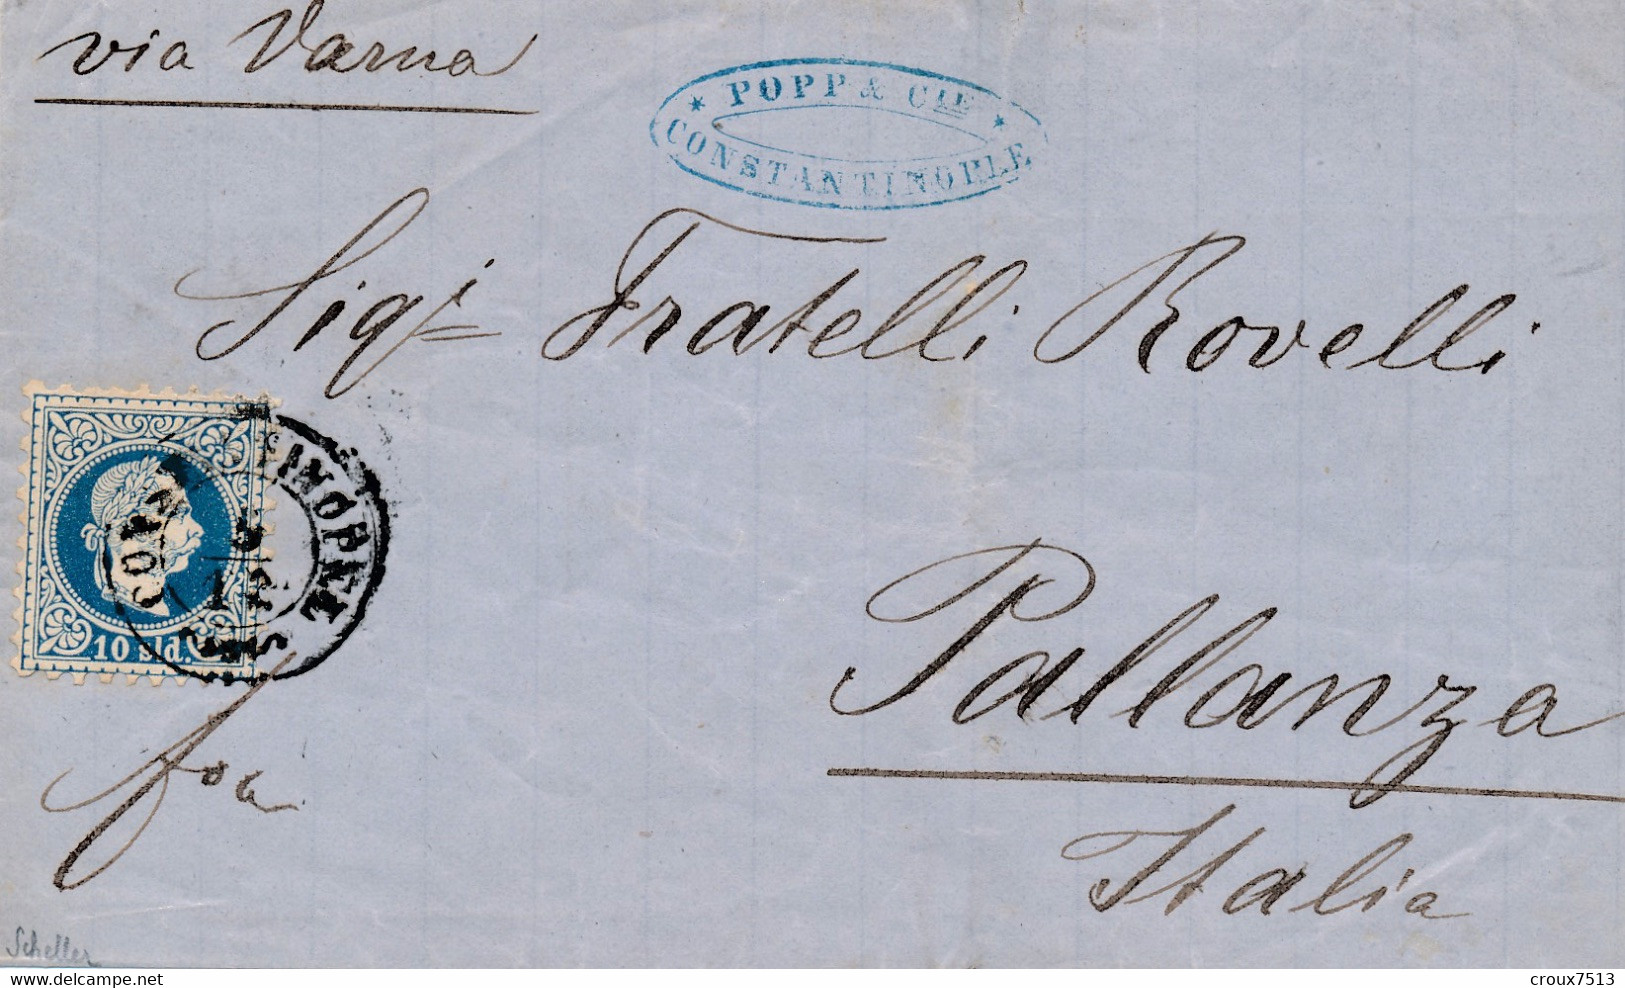 via Varna
* POPP & CIE *
CONSTANTINOPLE
Sigri Fratelli Rovelli
CONSTANTINOPEL
10 sld.
fca
Pallanza
Italia
Scheller
croux7513